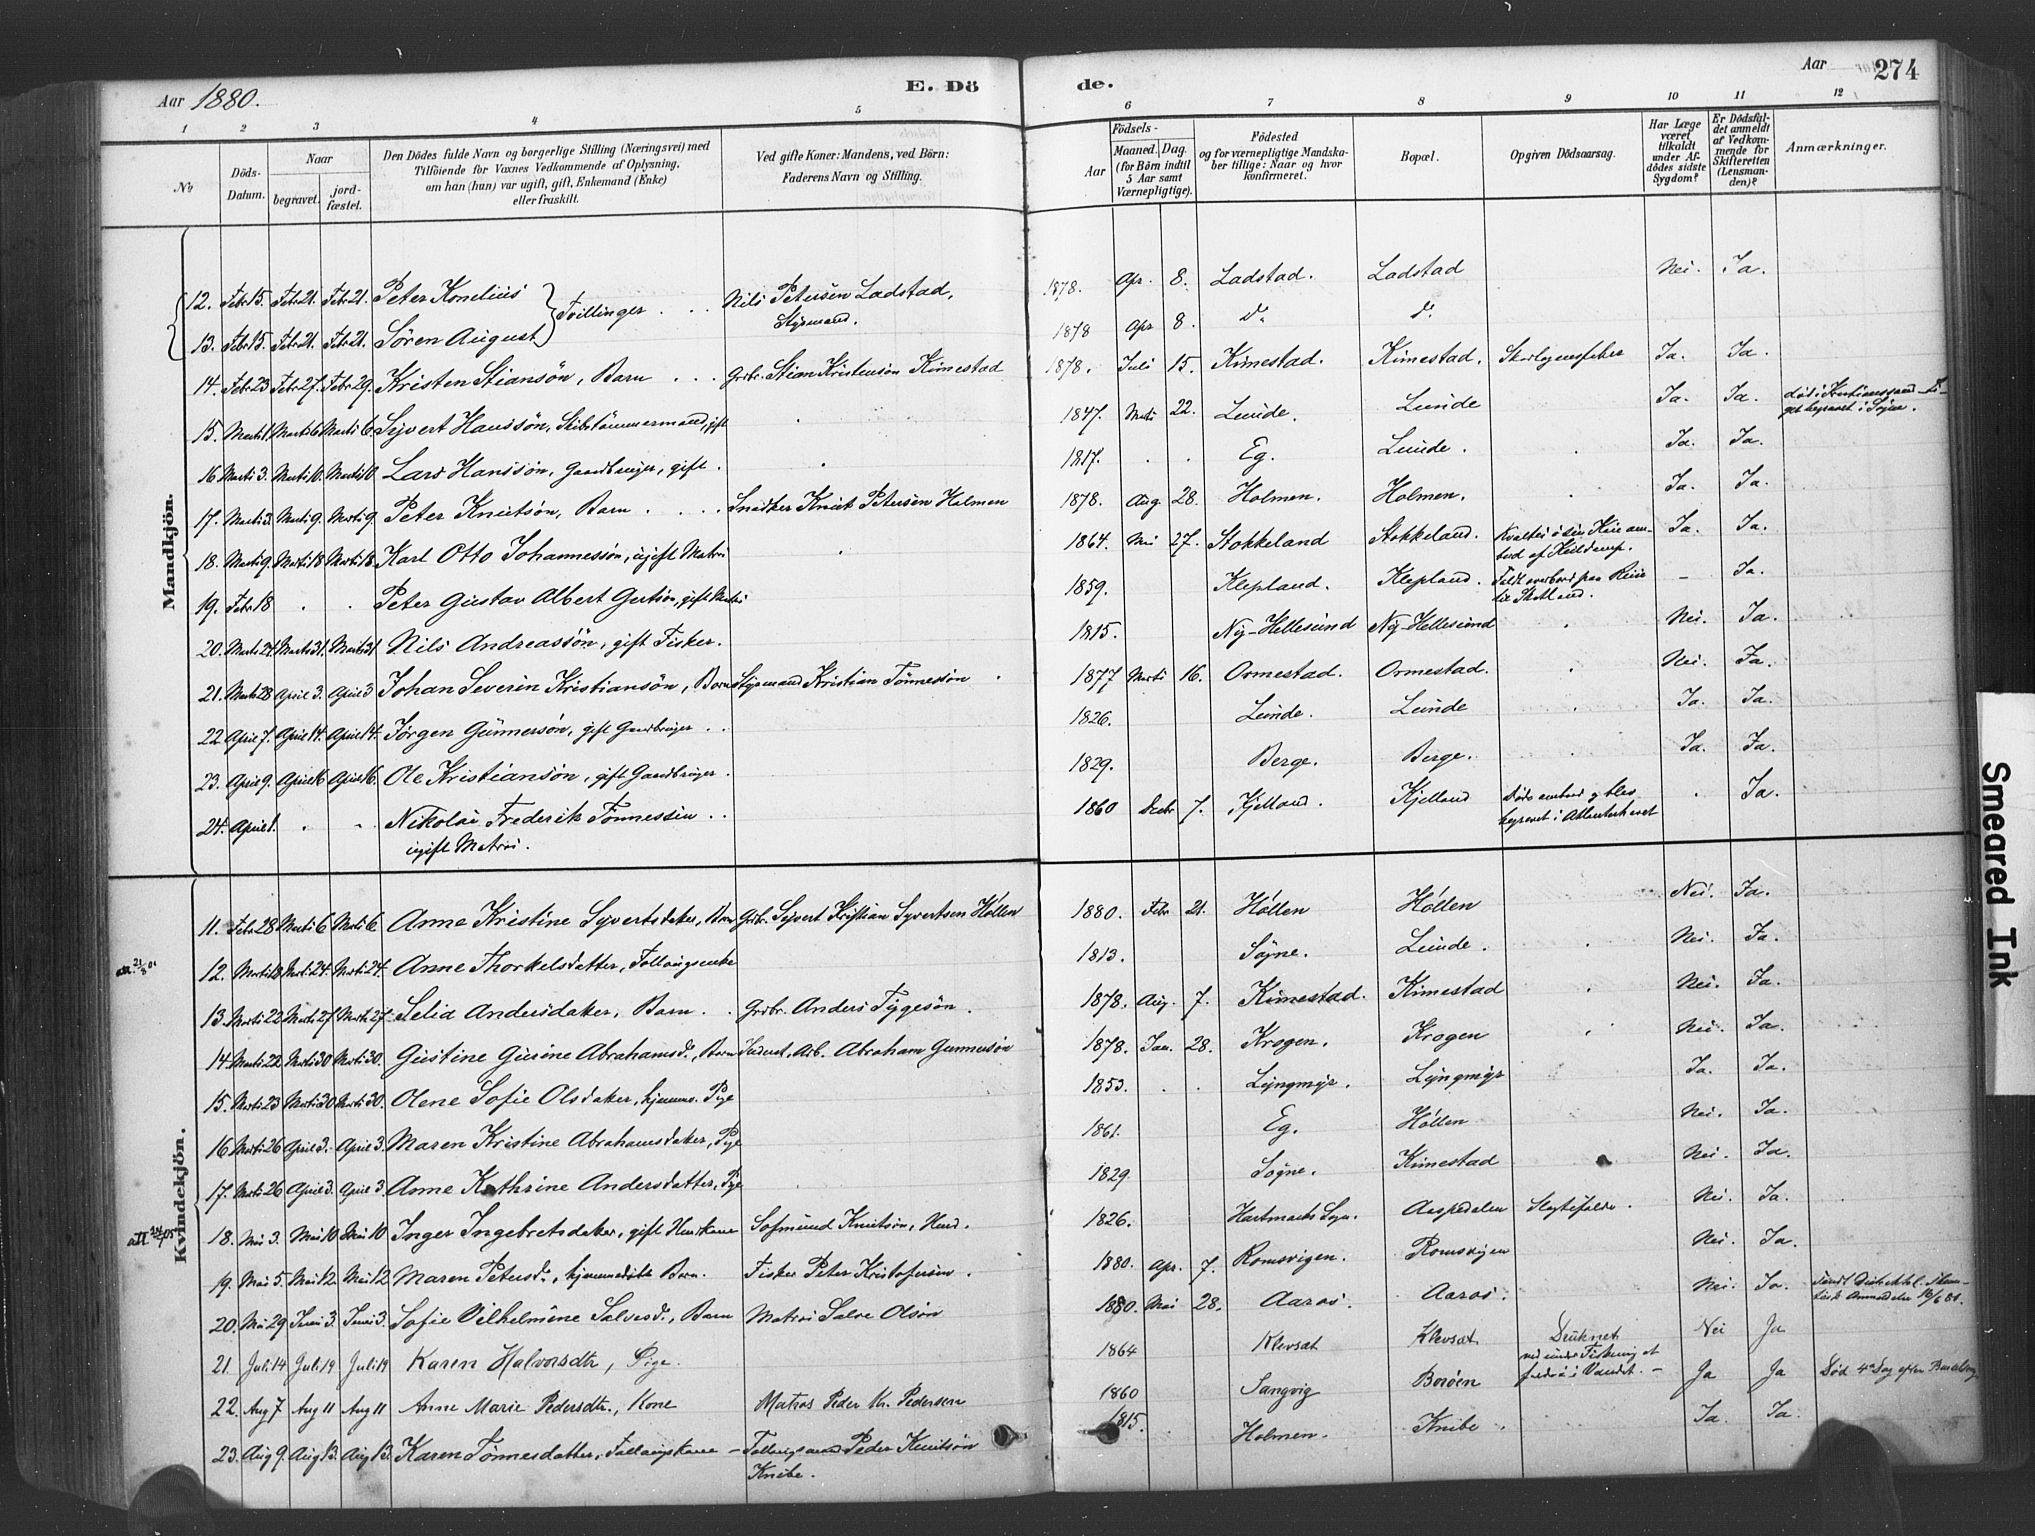 Aar 1880. E. Dö
de. Aar 274
1 2 3 4 5
6 7 8 9 10 11 12
No
Döds-Datum.
Naar
begravet.
jord-fæstet.
Den Dödes fulde Navn og borgerlige Stilling (Næringsvei) med
Tilföiende for Voxnes Vedkommende af Oplysning,
om han (hun) var ugift, gift, Enkemand (Enke)
eller fraskilt.
Ved gifte Koner: Mandens, ved Börn:
Faderens Navn og Stilling.
Födsels-
Aar
Maaned. Dag.
(for Börn indtil
5 Aar samt
Værnepligtige).
Födested
og for værnepligtige Mandska-
ber tillige: Naar og hvor
konfirmeret.
Bopæl.
Opgiven Dödsaarsag.
Har Læge
været
tilkaldt
under Af-
dödes sidste
Sygdom?
Er Dödsfal-
det anmeldt
af Vedkom-
mende for
Skifteretten
(Lensman-
den)?
Anmærkninger.
Mandkjön.
12. Febr 15. Febr 21. Febr 21. Peter Konelius } Tvillinger . . . Nils Petersen Ladstad, Styrmand. 1878. Apr. 8. Ladstad. Ladstad Nei. Ja.
13. Febr 15. Febr 21. Febr 21. Sören August 1878 Apr 8. do do
14. Febr 23 Febr 27. Febr 29. Kristen Stiansön, Barn . . . Grbr. Stian Kristensön Kimestad 1878. Juli 15. Kimestad. Kimestad. Skarlagensfeber Ja. Ja.
15. Marts 1. Marts 6 Marts 6. Syvert Hanssön, Skibstömmermand, gift 1847. Marts 22. Lunde. Lunde Ja. Ja. död i Kristianssand begravet i Sögne.
16 Marts 3. Marts 10. Marts 10. Lars Hanssön, Gaardbruger, gift. 1817. Eg. Lunde. Ja. Ja.
17. Marts 3. Marts 9. Marts 9. Peter Knutsön, Barn . . . . Snedker Knut Petersen Holmen 1878. Aug. 28. Holmen. Holmen. Ja. Ja.
18. Marts 9. Marts 18 Marts 18. Karl Otto Johannessön, ugift Matros 1864. Mai 27. Stokkeland Stokkeland. Kvaltes i sin Köie ombord af Kuldamp. Ja. Ja.
19. Febr 18 . . Peter Gustav Albert Gertsön, gift Matros 1859. Klepland. Klepland. Faldt overbord paa Reise til Skotland. – Ja.
20. Marts 24. Marts 31. Marts 31 Nils Andreassön, gift Fisker. 1815. Ny-Hellesund Ny-Hellesund Nei. Ja.
21. Marts 28 April 3. April 3 Johan Severin Kristiansön, Barn Styrmand Kristian Tönnessön 1877 Marts 16. Ormestad. Ormestad. Nei. Ja.
22 April 7. April 14. April 14. Jörgen Gunnersön, gift Gaardbruger . . 1826. Lunde. Lunde Ja. Ja.
23. April 9. April 16 April 16. Ole Kristiansön, gift Gaardbruger. 1829. Berge. Berge. Ja. Ja.
24. April 1. . . Nikolai Frederik Tönnessen . . ugift Matros. 1860 Decbr 7. Kjelland. Kjelland Döde ombord og blev begravet i Atlanterhavet . Ja.
Kvindekjön.
11. Febr 28 Marts 6 Marts 6. Anne Kristine Syvertsdatter, Barn Grbr. Syvert Kristian Syvertsen Höllen 1880. Febr 21. Höllen Höllen Nei. Ja.
12. Marts 18. Marts 24. Marts 24. Anne Thorkelsdatter, Föllaugsenke 1813. Sögne. Lunde. Nei. Ja.
13. Marts 22 Marts 27 Marts 27. Selia Andersdatter, Barn. . Grbr. Anders Tygesön. 1878. Aug. 7. Kimestad. Kimestad Nei. Ja.
14. Marts 22. Marts 30 Marts 30. Gustine Gusine Abrahamsdr, Barn Arb. Abraham Gunnersön 1878. Jan. 28. Krogen. Krogen Nei. Ja.
15. Marts 23 Marts 30. Marts 30. Olene Sofie Olsdatter, hjemmev. Pige 1853. . . Lyngmyr. Lyngmyr Ja. Ja.
16 Marts 26 April 3. April 3. Maren Kristine Abrahamsdatter, Pige 1861. Eg. Höllen Nei. Ja.
17. Marts 26 April 3. April 3. Anne Kathrine Andersdatter, Pige 1829. Sogne. Kimestad Nei. Ja.
18. Mai 3. Mai 10 Mai 10 Inger Ingebretsdatter, gift Huuskone Sofmund Knutsön, Husd. 1826. Hartmarks Sogn. Aaspedalen Nei. Ja.
19. Mai 5. Mai 12. Mai 12. Maren Petersdr, hjemmedöbt Barn. Fisker Peter Kristofersön. 1880. Apr. 7. Romsvigen. Romsvigen Nei. Ja.
20. Mai 29 Juni 3. Juni 3. Sofie Vilhelmine Salvesdr, Barn Matros Salve Olsön 1880. Mai 28. Aaros. Aaros. Nei. Ja.
21. Juli 14 Juli 19 Juli 19 Karen Halvorsdtr, Pige. 1864 Klevsat Klevsat Druknet ved under Fiskning at i Vandet. – Nei Ja
22. Aug 7 Aug 11 Aug 11 Anne Marie Pedersdtr., Kone Matros Peder Kr. Pedersen 1860 Sangvig Boröen Ja Ja Död 4de Dag efter
23. Aug 9. Aug 13. Aug 13. Karen Tönnesdatter, Föllaugskone – Föllaugsmand Peder Knutsön Knibe. 1815. Holmen. Knibe. Ja. Ja.
Smeared Ink